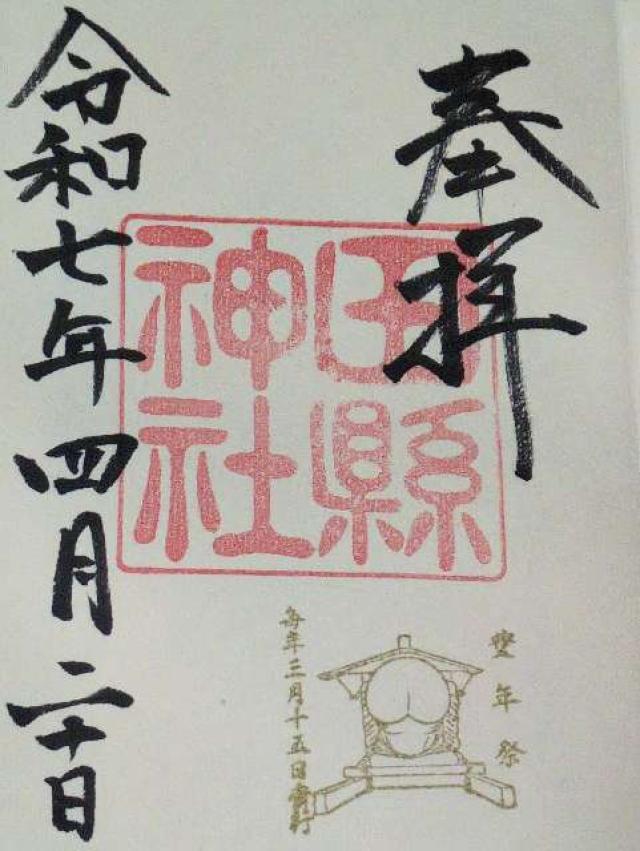 奉拝
田縣
神社
豊年祭
毎年三月十五日斎行
令和七年四月二十日